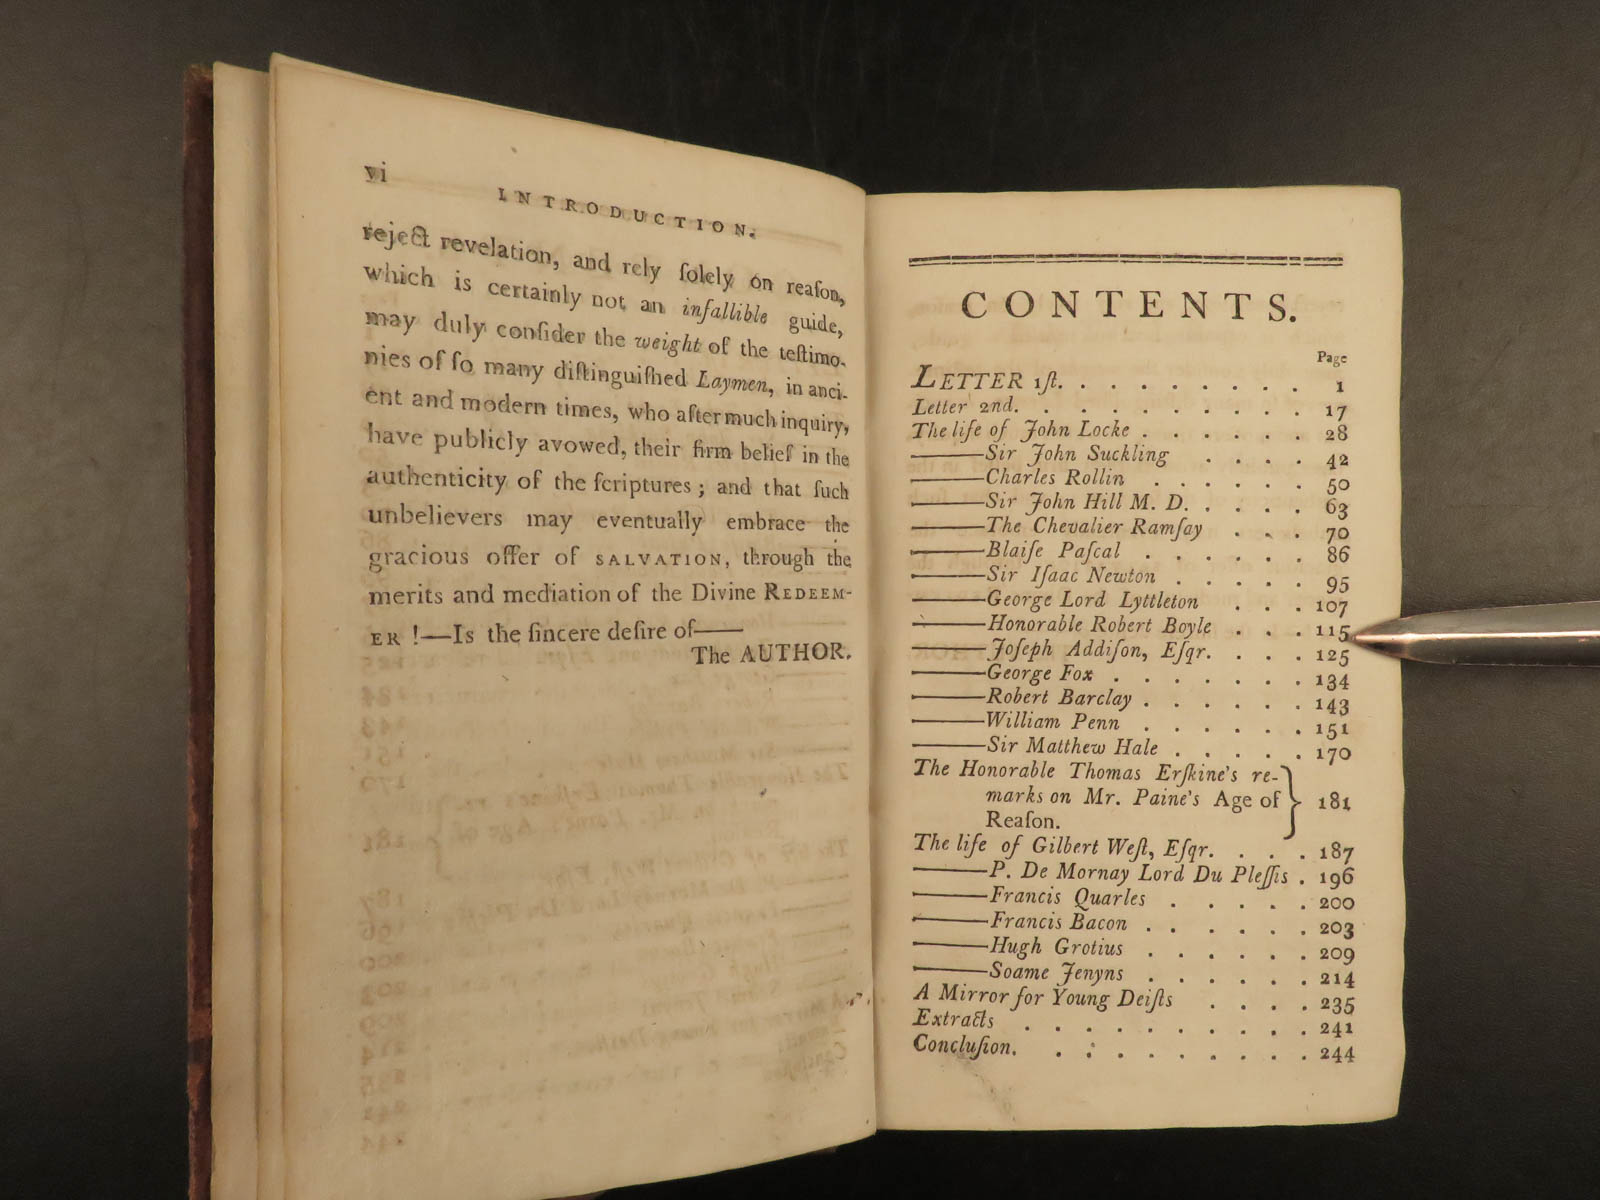 vi
INTRODUCTION.
reject revelation, and rely ſolely on reaſon,
which is certainly not an infallible guide,
may duly conſider the weight of the teſtimo-
nies of ſo many diſtinguiſhed Laymen, in anci-
ent and modern times, who after much inquiry,
have publicly avowed, their firm belief in the
authenticity of the ſcriptures; and that ſuch
unbelievers may eventually embrace the
gracious offer of SALVATION, through the
merits and mediation of the Divine REDEEM-
ER !—Is the ſincere deſire of——
The AUTHOR.
CONTENTS.
Page
LETTER 1ſt. . . . . . . . . . 1
Letter 2nd. . . . . . . . . . . 17
The life of John Locke . . . . . . 28
———Sir John Suckling . . . . 42
———Charles Rollin . . . . . . 50
———Sir John Hill M. D. . . . . 63
———The Chevalier Ramſay . . . 70
———Blaiſe Paſcal . . . . . . 86
———Sir Iſaac Newton . . . . . 95
———George Lord Lyttleton . . . 107
———Honorable Robert Boyle . . . 115
———Joſeph Addiſon, Eſqr. . . . 125
———George Fox . . . . . . . 134
———Robert Barclay . . . . . . 143
———William Penn . . . . . . 151
———Sir Matthew Hale . . . . . 170
The Honorable Thomas Erſkine's re-
marks on Mr. Paine's Age of } 181
Reaſon.
The life of Gilbert Weſt, Eſqr. . . . . 187
———P. De Mornay Lord Du Pleſſis . 196
———Francis Quarles . . . . . 200
———Francis Bacon . . . . . . 203
———Hugh Grotius . . . . . . 209
———Soame Jenyns . . . . . . 214
A Mirror for Young Deiſts . . . . 235
Extracts . . . . . . . . . . 241
Concluſion. . . . . . . . . . 244